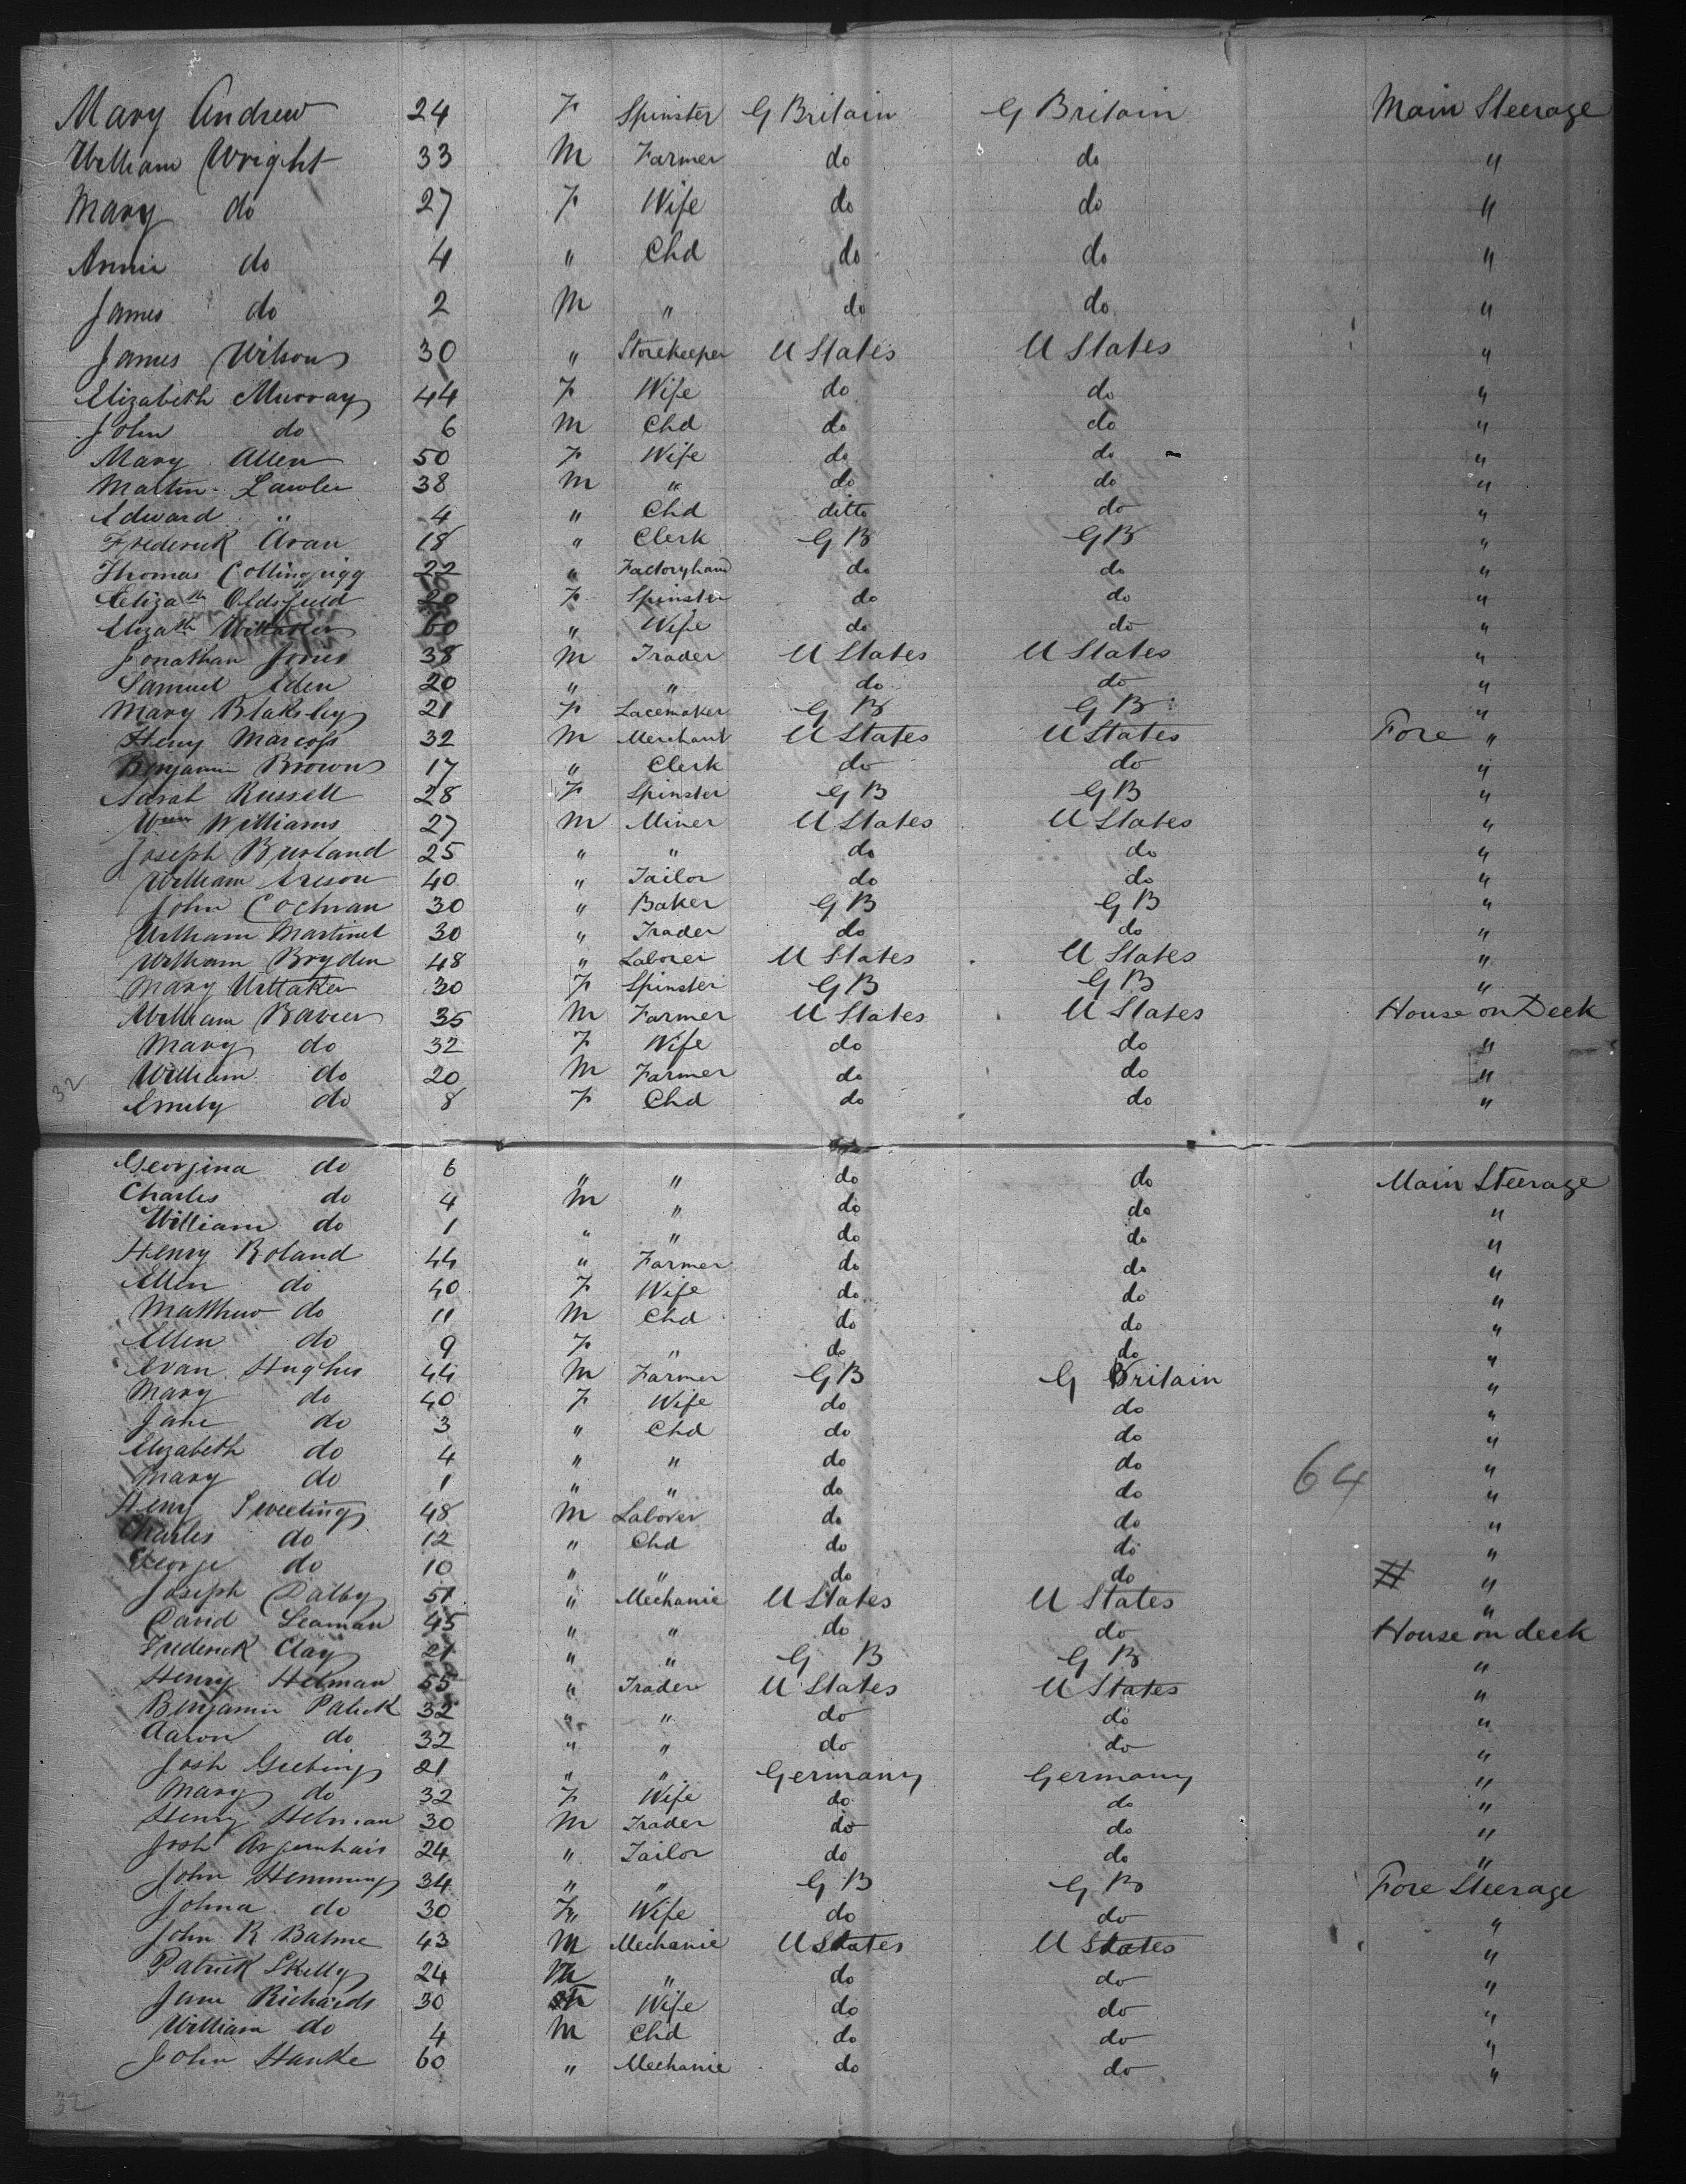 Mary Andrew 24 F Spinster G Britain G Britain Main Steerage
William Wright 33 M Farmer do do "
Mary do 27 F Wife do do "
Annie do 4 " Chd do do "
James do 2 M " do do "
James Wilson 30 " Storekeeper U States U States "
Elizabeth Murray 44 F Wife do do "
John do 6 M Chd do do "
Mary Allen 50 F Wife do do "
Martin Lawler 38 M " do do "
Edward " 4 " Chd ditto do "
Frederick Avan 18 " Clerk G B G B "
Thomas 22 " Factoryhand do do "
Elizath Oldsfield 20 F Spinster do do "
Elizath Wittaker 60 " Wife do do "
Jonathan Jones 38 M Trader U States U States "
Samuel Eden 20 " " do do "
Mary Blaksley 21 F Lacemaker G B G B "
Henry Marcoss 32 M Merchant U States U States Fore "
Benjamin Brown 17 " Clerk do do "
Sarah Russell 28 F Spinster G B G B "
Wm Williams 27 M Miner U States U States "
Joseph Burland 25 " " do do "
William 40 " Tailor do do "
John Cochran 30 " Baker G B G B "
William Martinet 30 " Trader do do "
William Bryden 48 " Laborer U States U States "
Mary Wittaker 30 F Spinster G B G B "
William 35 M Farmer U States U States House on Deck
Mary do 32 F Wife do do "
William do 20 M Farmer do do "
32
Emily do 8 F Chd do do "
Georgina do 6 " " do do Main Steerage
Charles do 4 M " do do "
William do 1 " " do do "
Henry Roland 44 " Farmer do do "
Ellen do 40 F Wife do do "
Matthew do 11 M Chd do do "
Ellen do 9 F " do do "
Evan Hughes 44 M Farmer G B G Britain "
Mary do 40 F Wife do do "
Jane do 3 " Chd do do "
Elizabeth do 4 " " do do "
64
Mary do 1 " " do do "
Henry Sweeting 48 M Laborer do do "
Charles do 12 " Chd do do "
George do 10 " " do do "
Joseph Dalby 51 " Mechanic U States U States "
David Seaman 45 " " do do House on deck
Frederick Clay 21 " " G B G B "
Henry Helman 55 " Trader U States U States "
Benjamin Patick 32 " " do do "
Aaron do 32 " " do do "
Josh 21 " " Germany Germany "
Mary do 32 F Wife do do "
Henry Helman 30 M Trader do do "
Josh 24 " Tailor do do "
John Hemming 34 " " G B G B Fore Steerage
Johna do 30 F" Wife do do "
John R Balme 43 M Mechanic U States U States "
Patrick Skelly 24 M " do do "
Jane Richards 30 Wife do do "
William do 4 M Chd do do "
John Hanke 60 " Mechanic do do "
32